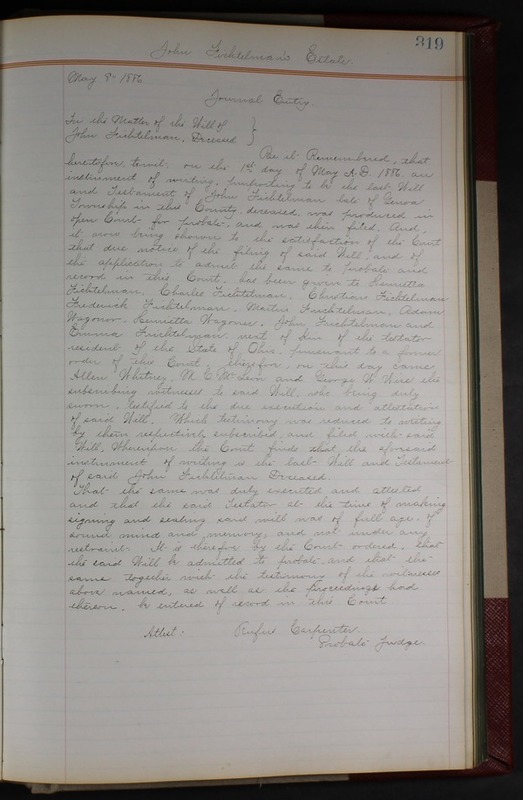 319
John Fichtelman's Estate.
May 8th 1886.
Journal Entry.
In the Matter of the Will of
John Fichtelman, Deceased }
Be it Remembered, that
heretofore, towit, on the 1st day of May A.D. 1886 an
instrument of writing, purporting to be the last Will
and Testament of John Fichtelman late of Genoa
Township in this County, deceased, was produced in
open Court for probate, and was then filed. And,
it now being shown to the satisfaction of the Court
that due notice of the filing of said Will, and of
the application to admit the same to probate and
record in this Court, has been given to Henrietta
Fichtelman, Charles Fichtelman, Christian Fichtelman
Frederick Fichtelman, Martin Fichtelman, Adam
Wagoner, Henrietta Wagoner, John Fichtelman and
Emma Fichtelman next of Kin of the testator
resident of the State of Ohio, pursuant to a former
order of this Court. Therefore, on this day came
Allen Whitney, M. C. and George W. Wise the
subscribing witnesses to said Will, who being duly
sworn, testified to the due execution and attestation
of said Will. Which testimony was reduced to writing
by them respectively subscribed, and filed with said
Will. Whereupon the Court finds that the aforesaid
instrument of writing is the last Will and Testament
of said John Fichtelman Deceased.
That the same was duly executed and attested
and that the said Testator at the time of making
signing and sealing said will was of full age, of
sound mind and memory, and not under any
restraint. It is therefore by the Court ordered, that
the said Will be admitted to probate, and that the
same together with the testimony of the witnesses
above named, as well as the proceedings had
thereon, be entered of record in this Court.
Attest: Rufus Carpenter
Probate Judge.